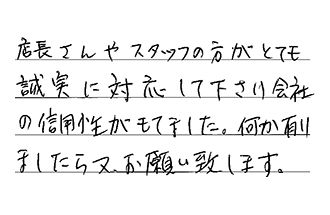 店長さんやスタッフの方がとても
誠実に対応して下さり会社
の信用性がもてました。何か有り
ましたら又、お願い致します。